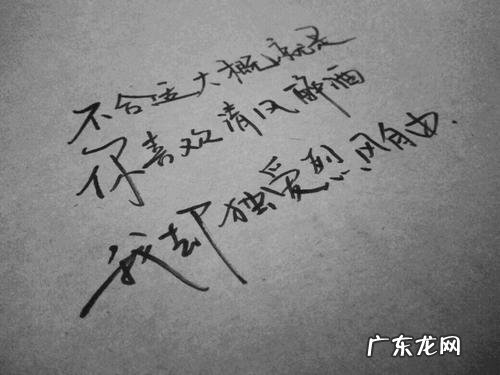 不合适大概就是
你喜欢清风醉酒
我却独爱烈风自由.
广东龙网